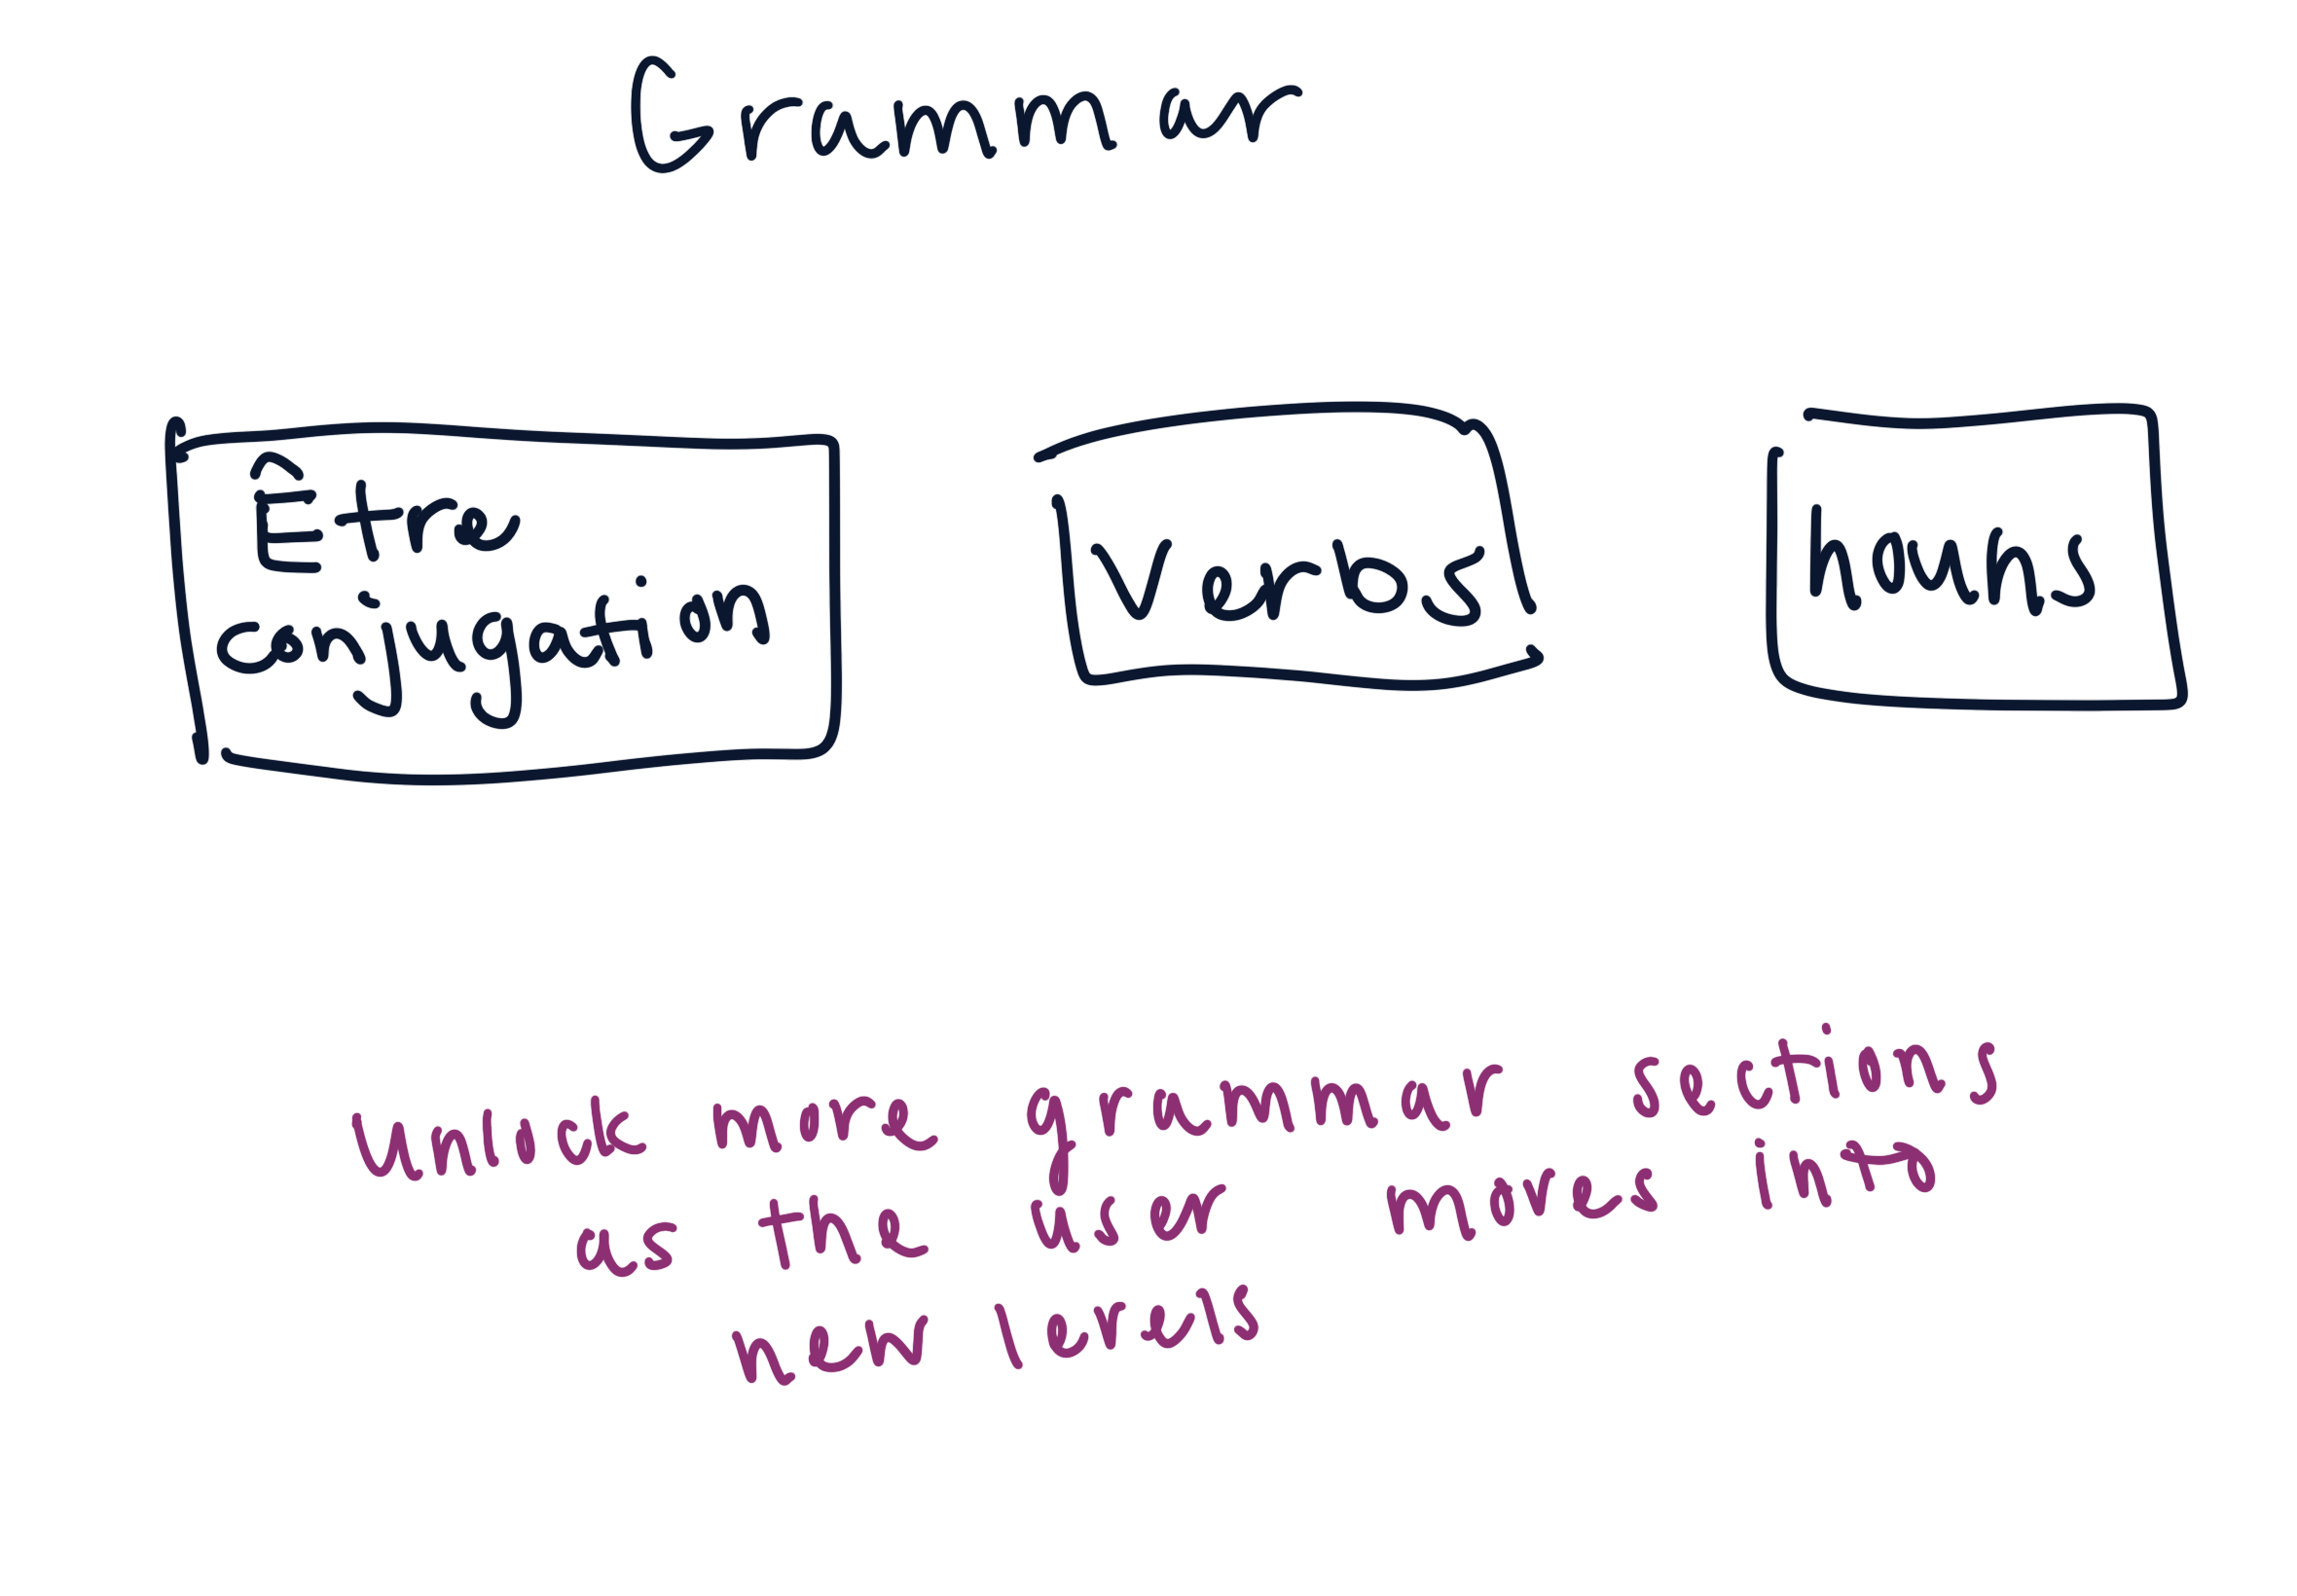 Grammar
Être
conjugation
Verbs
nouns
unlock more grammar sections
as the user moves into
new levels